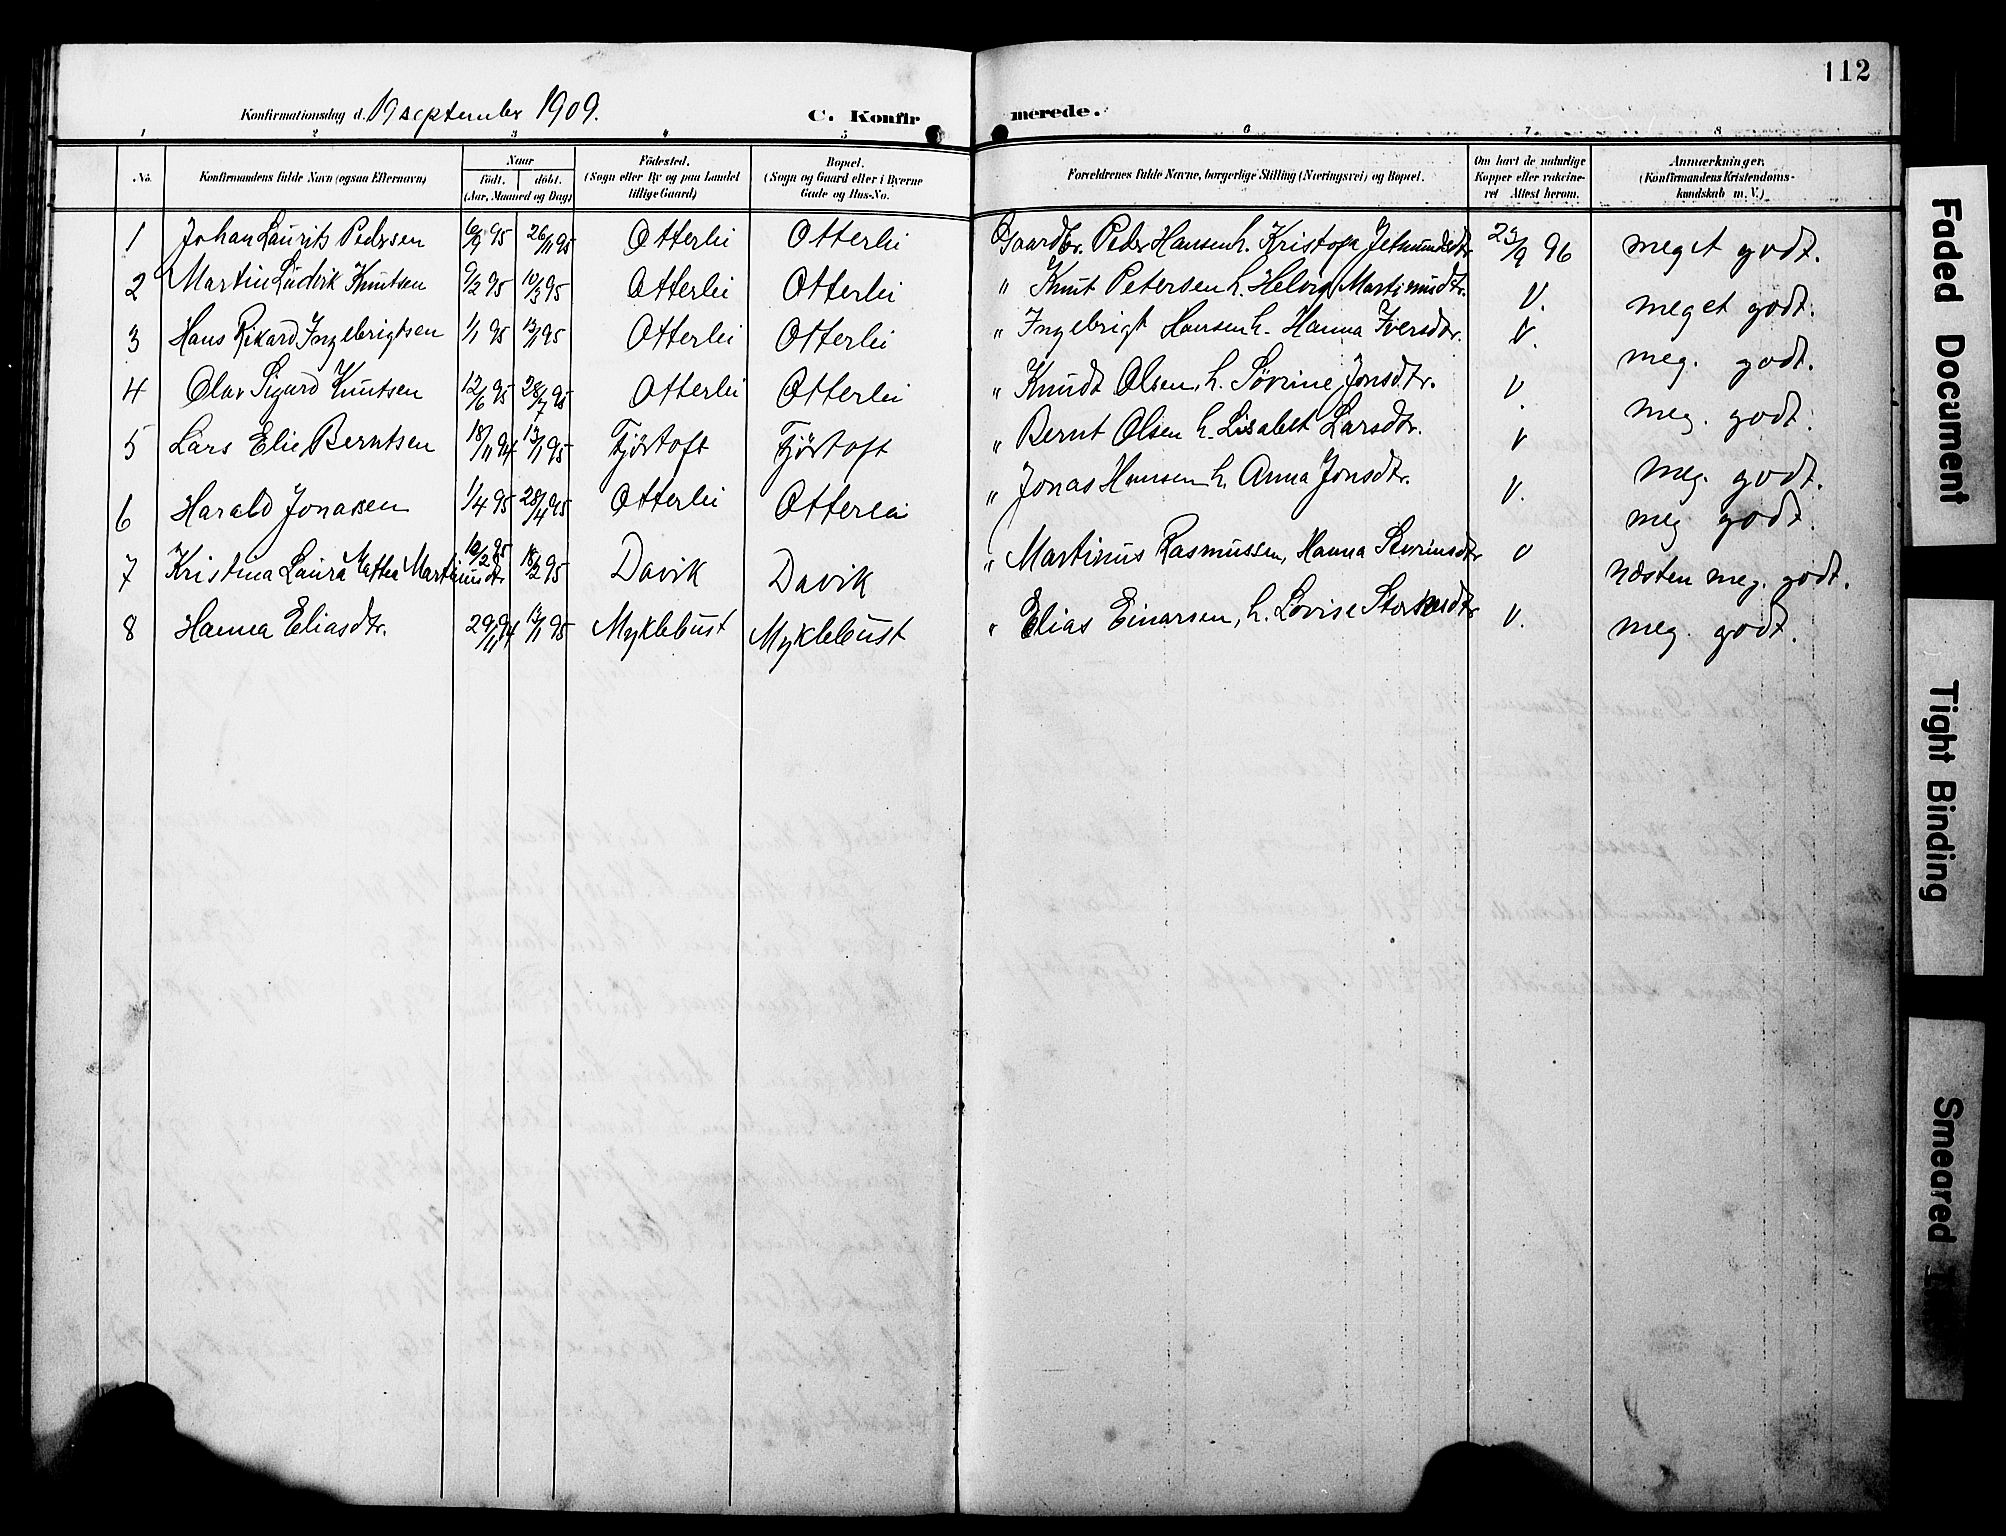 112
Konfirmationsdag d. 19 september 1909. C. Konfirmerede.
1 2 3 4 5 6 7 8
No. Konfirmandens fulde Navn (ogsaa Efternavn) Naar født. døbt. (Aar, Maaned og Dag) Fødested. (Sogn eller By og paa Landet tillige Gaard) Bopæl. (Sogn og Gaard eller i Byerne Gade og Hus-No. Forældrenes fulde Navne, borgerlige Stilling (Næringsvei) og Bopæl. Om havt de naturlige Kopper eller vakcineret Attest herom. Anmærkninger. (Konfirmandens Kristendomskundskab m. V.)
1 Johan Laurits Pedersen 6/9 95 26/11 95 Otterlei Otterlei Gaardbr. Peder Hansen h. Kristofa Jetmundsdtr 23/9 96 meget godt.
2 Martin Ludvik Knutsen 9/2 95 10/3 95 Otterlei Otterlei " Knut Petersen h. Helvig Martinusdtr. V. meget godt.
3 Hans Rikard Ingebrigtsen 1/1 95 13/1 95 Otterlei Otterlei " Ingebrigt Hansen h. Hanna Iversdtr. V. meg. godt.
4 Olav Sigurd Knutsen 12/6 95 28/7 95 Otterlei Otterlei " Knudt Olsen, h. Sørine Jonsdtr. V meg. godt.
5 Lars Elie Berntsen 18/11 94 13/1 95 Fjörtoft Fjörtoft " Bernt Olsen h. Lisabet Larsdtr. V meg. godt.
6 Harald Jonassen 1/4 95 28/4 95 Otterlei Otterlei " Jonas Hansen h. Anna Jonsdtr. V. meg godt.
7 Kristina Laura Mathea Martinusdtr 10/2 95 18/2 95 Davik Davik " Martinus Rasmussen, Hanna Severinsdtr V næsten meg. godt.
8 Hanna Eliasdtr. 29/11 94 13/1 95 Myklebust Myklebust " Elias Einarsen, h. Lovise V. meg. godt.
Faded Document
Tight Binding
Smeared